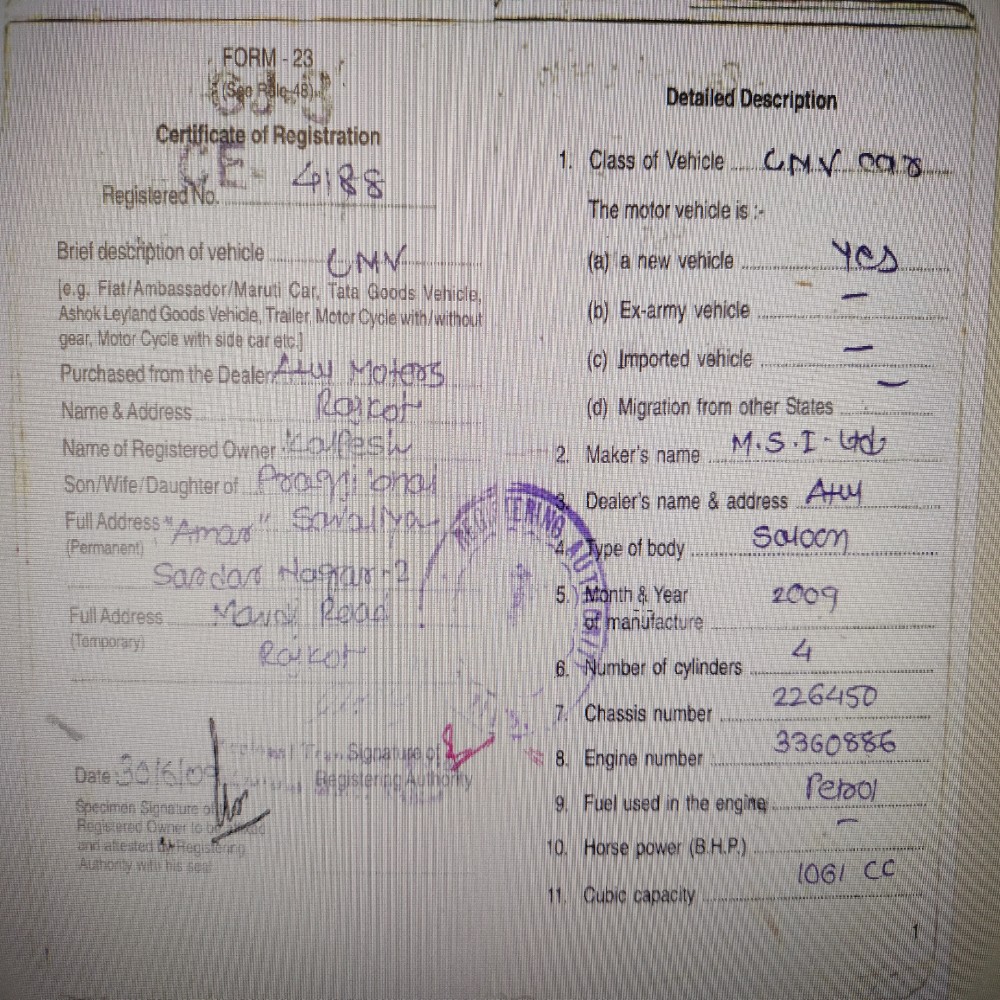 FORM - 23
(See Rule-48)
Certificate of Registration
CE- 4188
Registered No.
Brief description of vehicle LMV
[e.g. Fiat/Ambassador/Maruti Car, Tata Goods Vehicle,
Ashok Leyland Goods Vehicle, Trailer, Motor Cycle with/without
gear, Motor Cycle with side car etc.]
Purchased from the Dealer Atul Motors
Name & Address Rajkot
Name of Registered Owner Kalpesh
Son/Wife/Daughter of Pragjibhai
Full Address "Amar" Savaliya
(Permanent)
Sardar Nagar-2
Full Address Mavdi Road
(Temporary)
Rajkot
Signature of
Date 30/6/09 Registering Authority
Specimen Signature of
Registered Owner to be
and attested by Registering
Authority with his seal
REGISTERING AUTHORITY
Detailed Description
1. Class of Vehicle LMV car
The motor vehicle is :-
(a) a new vehicle Yes
(b) Ex-army vehicle –
(c) Imported vehicle –
(d) Migration from other States –
2. Maker's name M.S.I-Ltd
3. Dealer's name & address Atul
4. Type of body Saloon
5. Month & Year 2009
of manufacture
6. Number of cylinders 4
7. Chassis number 226450
8. Engine number 3360886
9. Fuel used in the engine Petrol
10. Horse power (B.H.P.) –
11. Cubic capacity 1061 CC
1